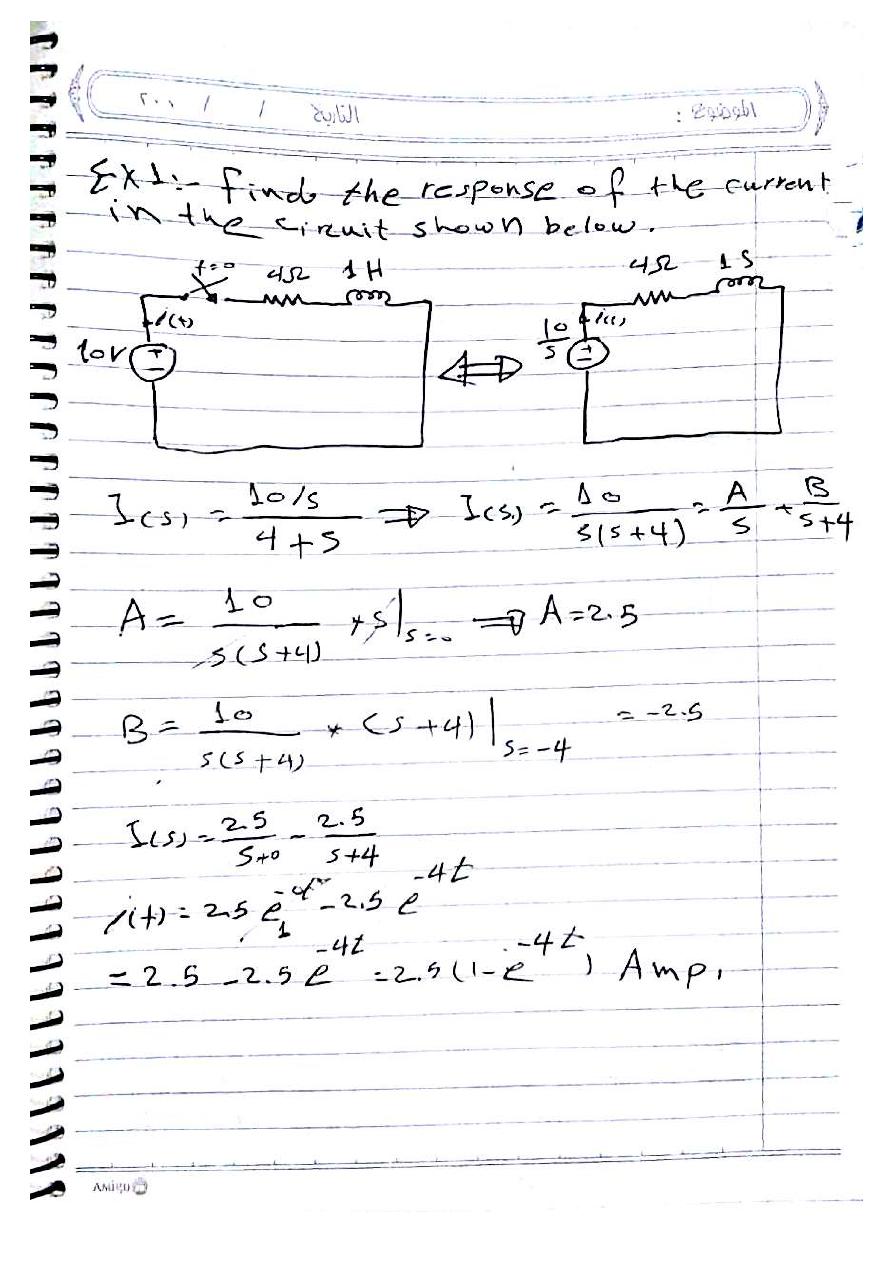 الموضوع : التاريخ / / ٢٠٠
Ex1:- find the response of the current
in the circuit shown below.
t=0 4Ω 1H 4Ω 1S
i(t) 10/s i(s)
10V
I(s) = 10/s / 4+s ⇒ I(s) = 10 / s(s+4) = A/s + B/s+4
A = 10 / s(s+4) * s|s=0 ⇒ A=2.5
B = 10 / s(s+4) * (s+4)|s=-4 = -2.5
I(s) = 2.5/s+0 - 2.5/s+4
i(t) = 2.5 e^-0t - 2.5 e^-4t
1
= 2.5 - 2.5 e^-4t = 2.5(1-e^-4t) Amp.
AMIGO